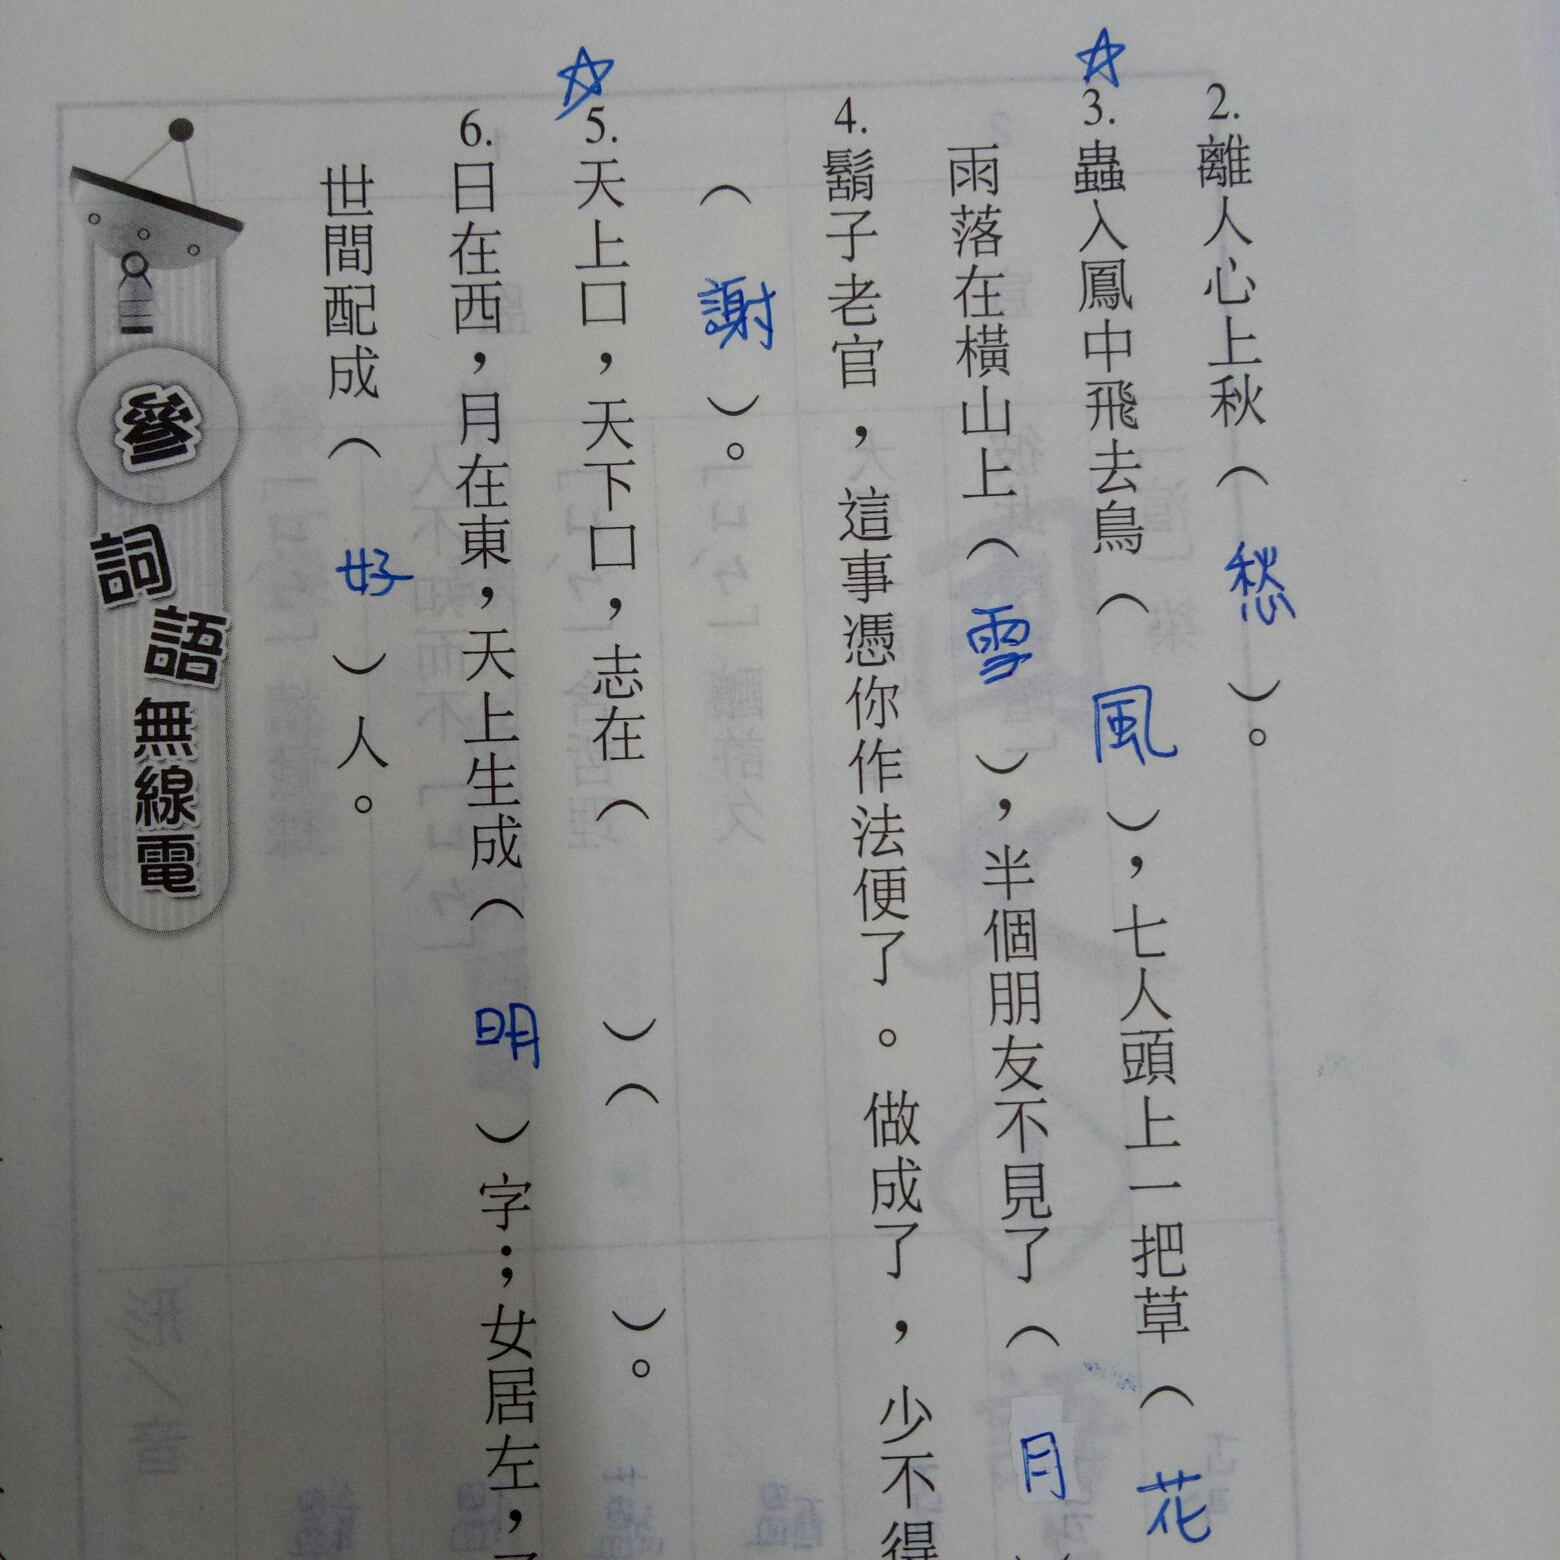 ☆
2.離人心上秋（愁）。
3.蟲入鳳中飛去鳥（風），七人頭上一把草（花
雨落在橫山上（雪），半個朋友不見了（月）
4.鬍子老官，這事憑你作法便了。做成了，少不得
（謝）。
☆
5.天上口，天下口，志在（　）（　）。
6.日在西，月在東，天上生成（明）字；女居左，子
世間配成（好）人。
參 詞語無線電